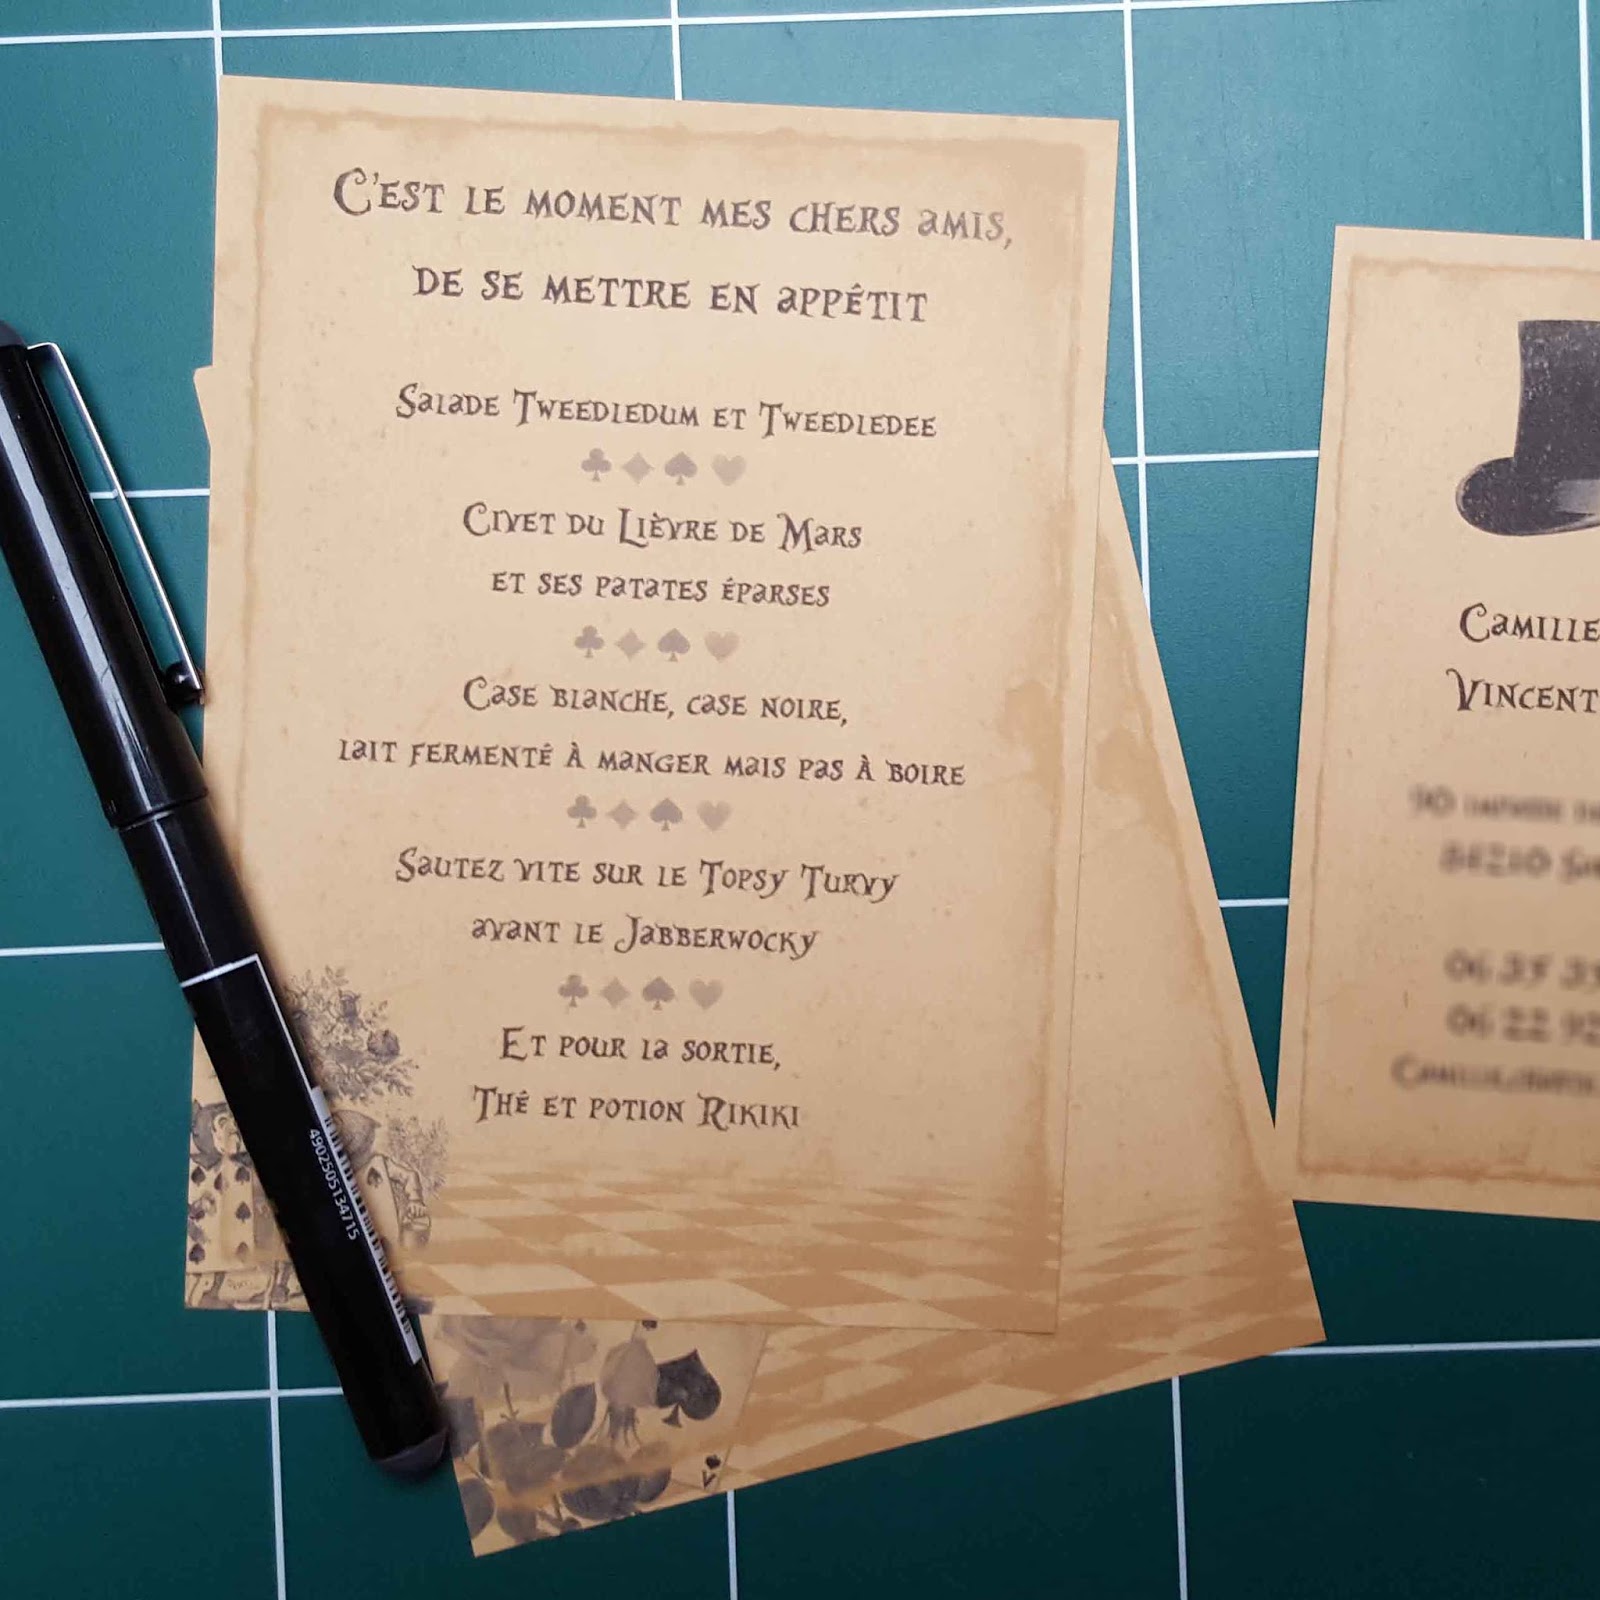 C'est le moment mes chers amis,
de se mettre en appétit
Salade Tweedledum et Tweedledee
Civet du Lièvre de Mars
et ses patates éparses
Case blanche, case noire,
lait fermenté à manger mais pas à boire
Sautez vite sur le Topsy Turvy
avant le Jabberwocky
Et pour la sortie,
Thé et potion Rikiki
4902505134715
Camille
Vincent